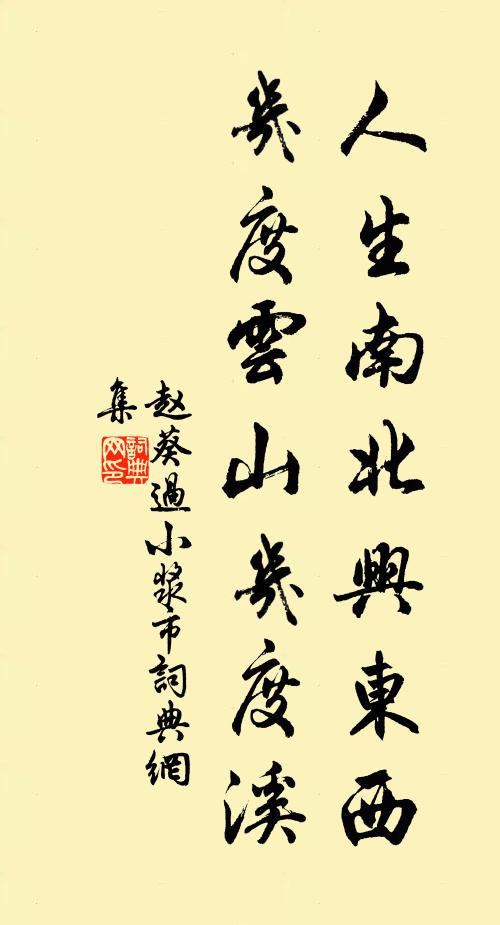 人生南北與東西
幾度雲山幾度溪
赵葵過小漿市詞典網
集
詞典网印